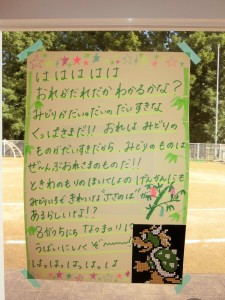 はははははは
おれがだれだか わかるかな?
みどりがだいのだいの だいすきな
くっぱさまだ!! おれは みどりの
ものがだいすきだから、みどりのものは
ぜ〜んぶおれさまのものだ!!
ときわのもりの
みどりいろで きれいな "ささのは" が
あるらしいけど!?
うばいにいくぞ〜
はっはっはっはっは